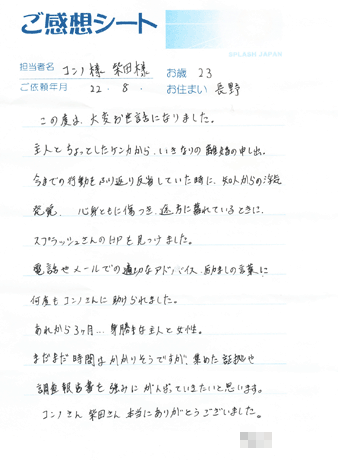 ご感想シート
SPLASH JAPAN
担当者名 コンノ様 柴田様 お歳 23
ご依頼年月 22.8. お住まい 長野
この度は、大変お世話になりました。
主人とちょっとしたケンカから、いきなりの離婚の申し出。
今までの行動をふり返り反省していた時に、知人からの浮気
発覚。 心身ともに傷つき、途方に暮れているときに、
スプラッシュさんのHPを見つけました。
電話やメールでの適切なアドバイス、励ましの言葉に
何度もコンノさんに助けられました。
あれから3ヶ月… 身勝手な主人と女性。
まだまだ時間はかかりそうですが、集めた証拠や
調査報告書を強みにがんばっていきたいと思います。
コンノさん 柴田さん 本当にありがとうございました。